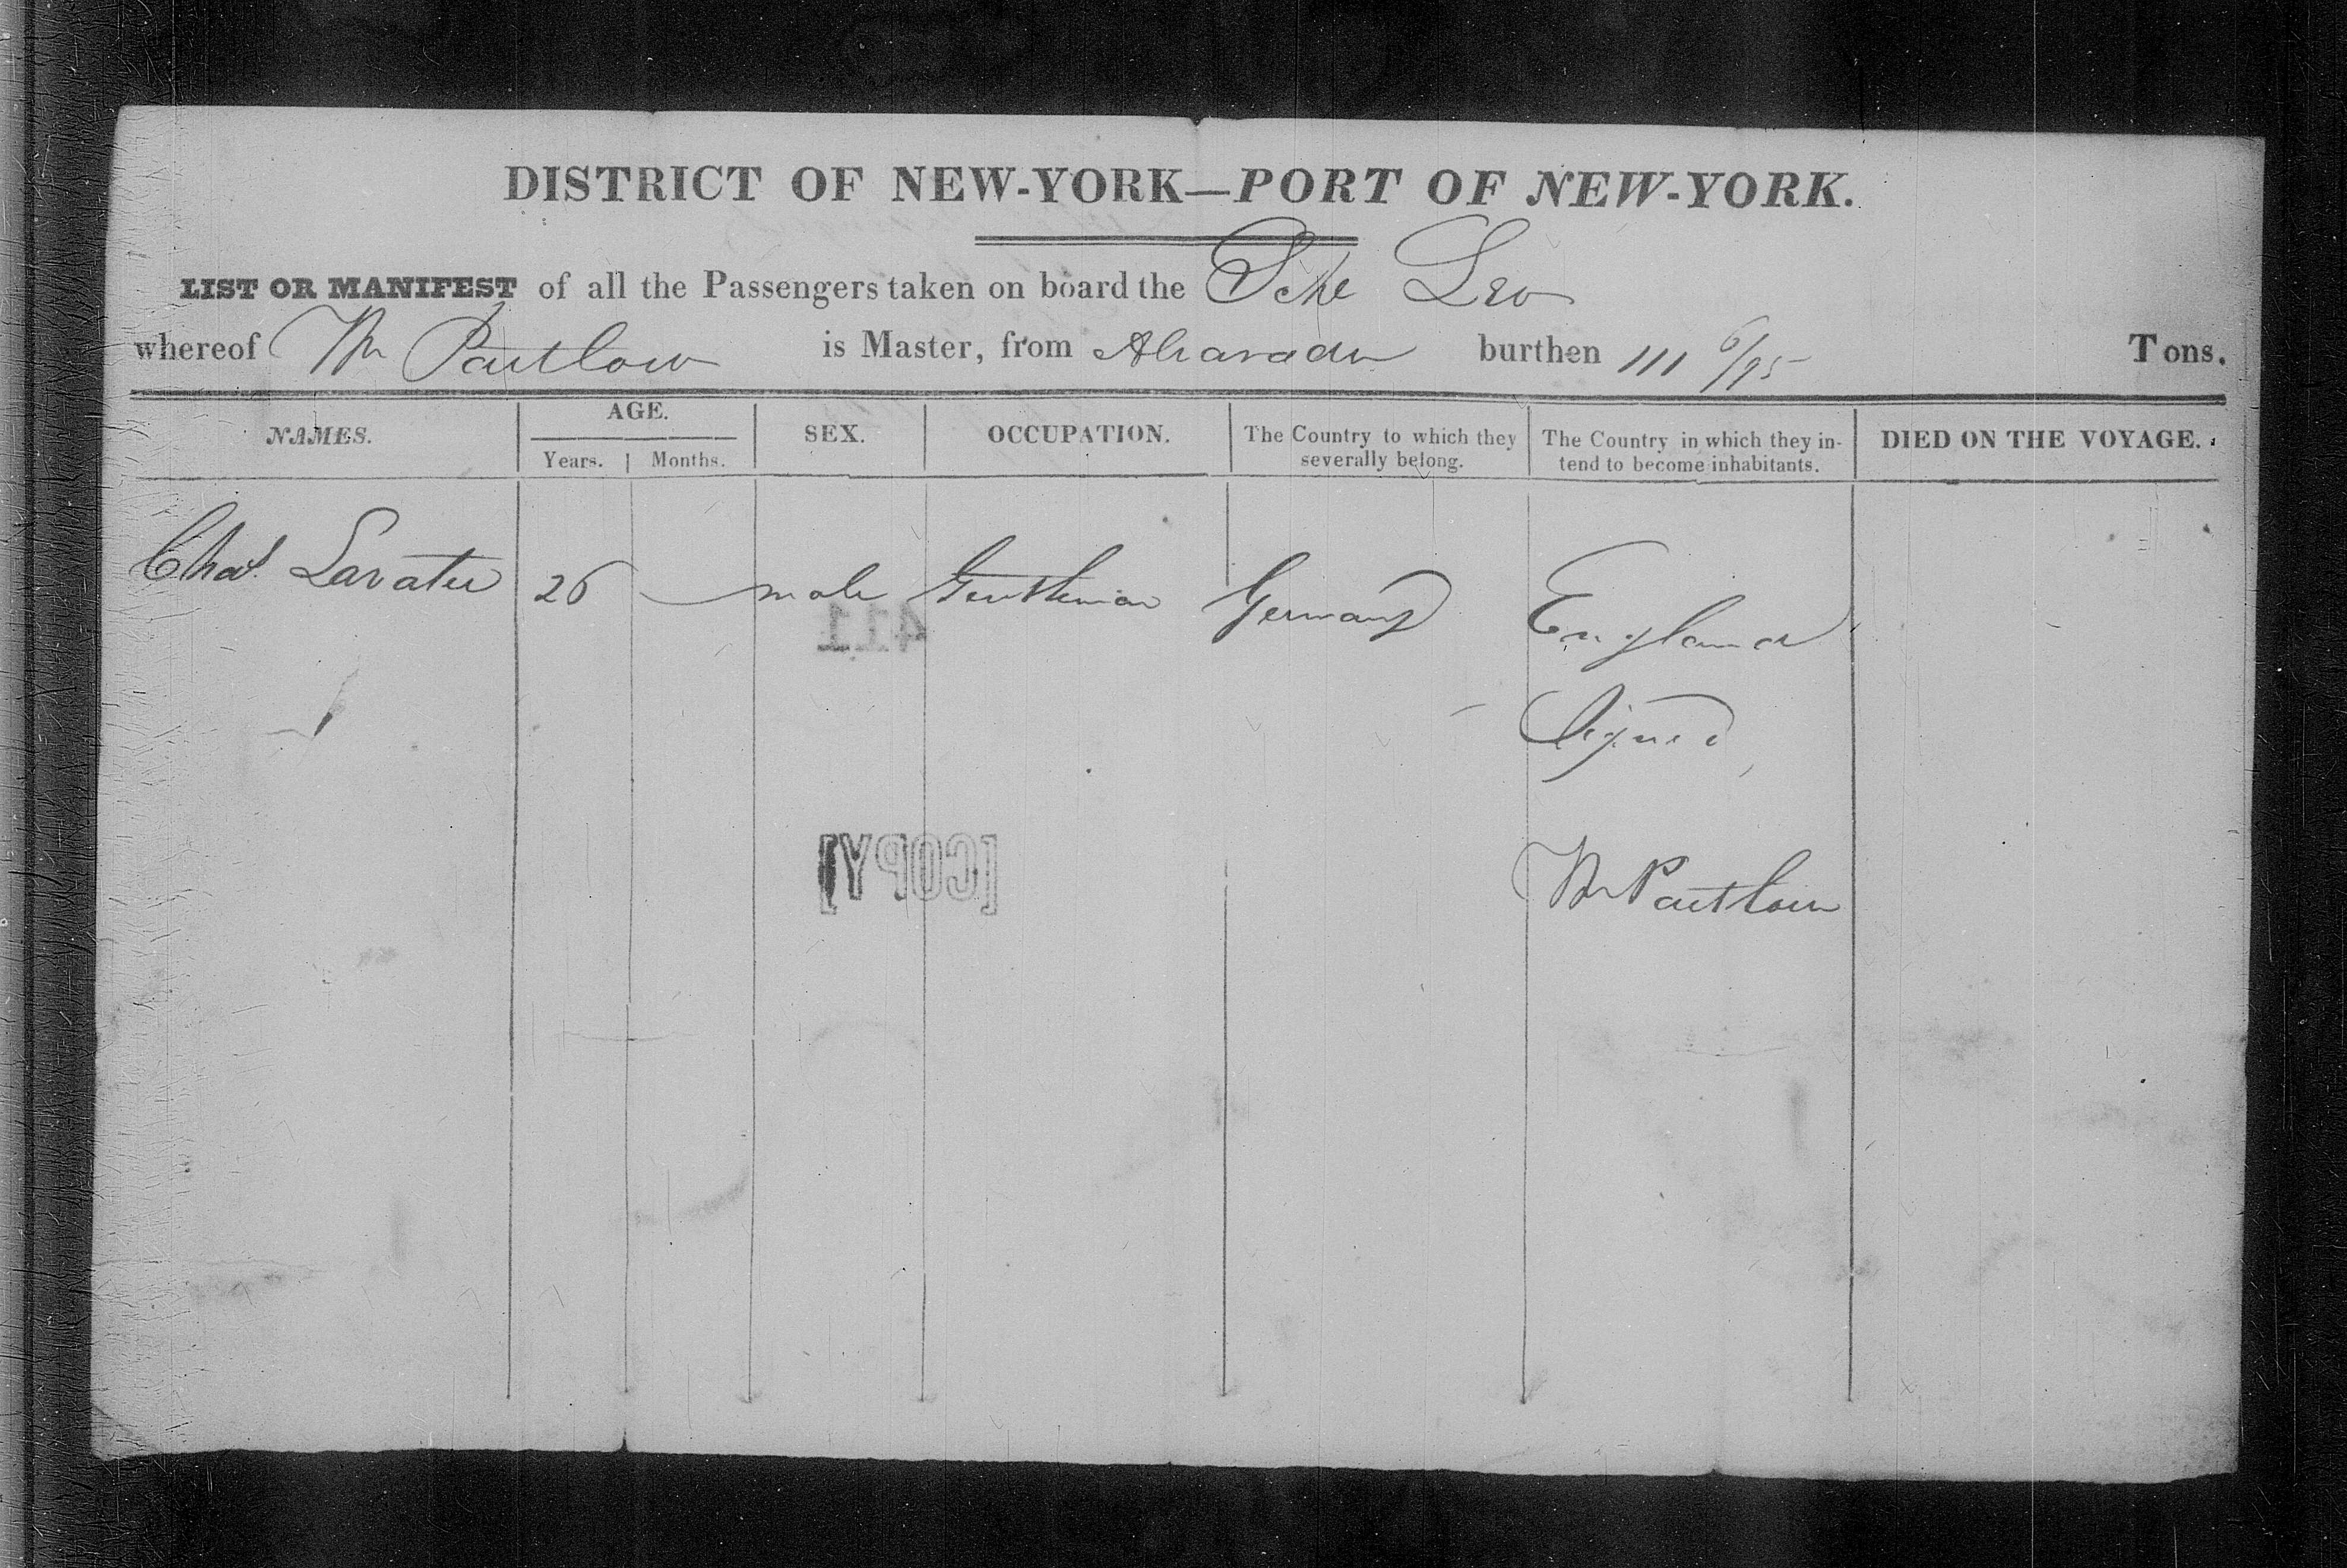 DISTRICT OF NEW-YORK—PORT OF NEW-YORK.
LIST OR MANIFEST of all the Passengers taken on board the Schr Leo
whereof Wm Partlow is Master, from Alvarado burthen 111 6/95 Tons.
NAMES. AGE. Years. Months. SEX. OCCUPATION. The Country to which they severally belong. The Country in which they intend to become inhabitants. DIED ON THE VOYAGE.
Chas. Lavater 26 male Gentleman Germany England
411
Signed
[COPY]
Wm Partlow